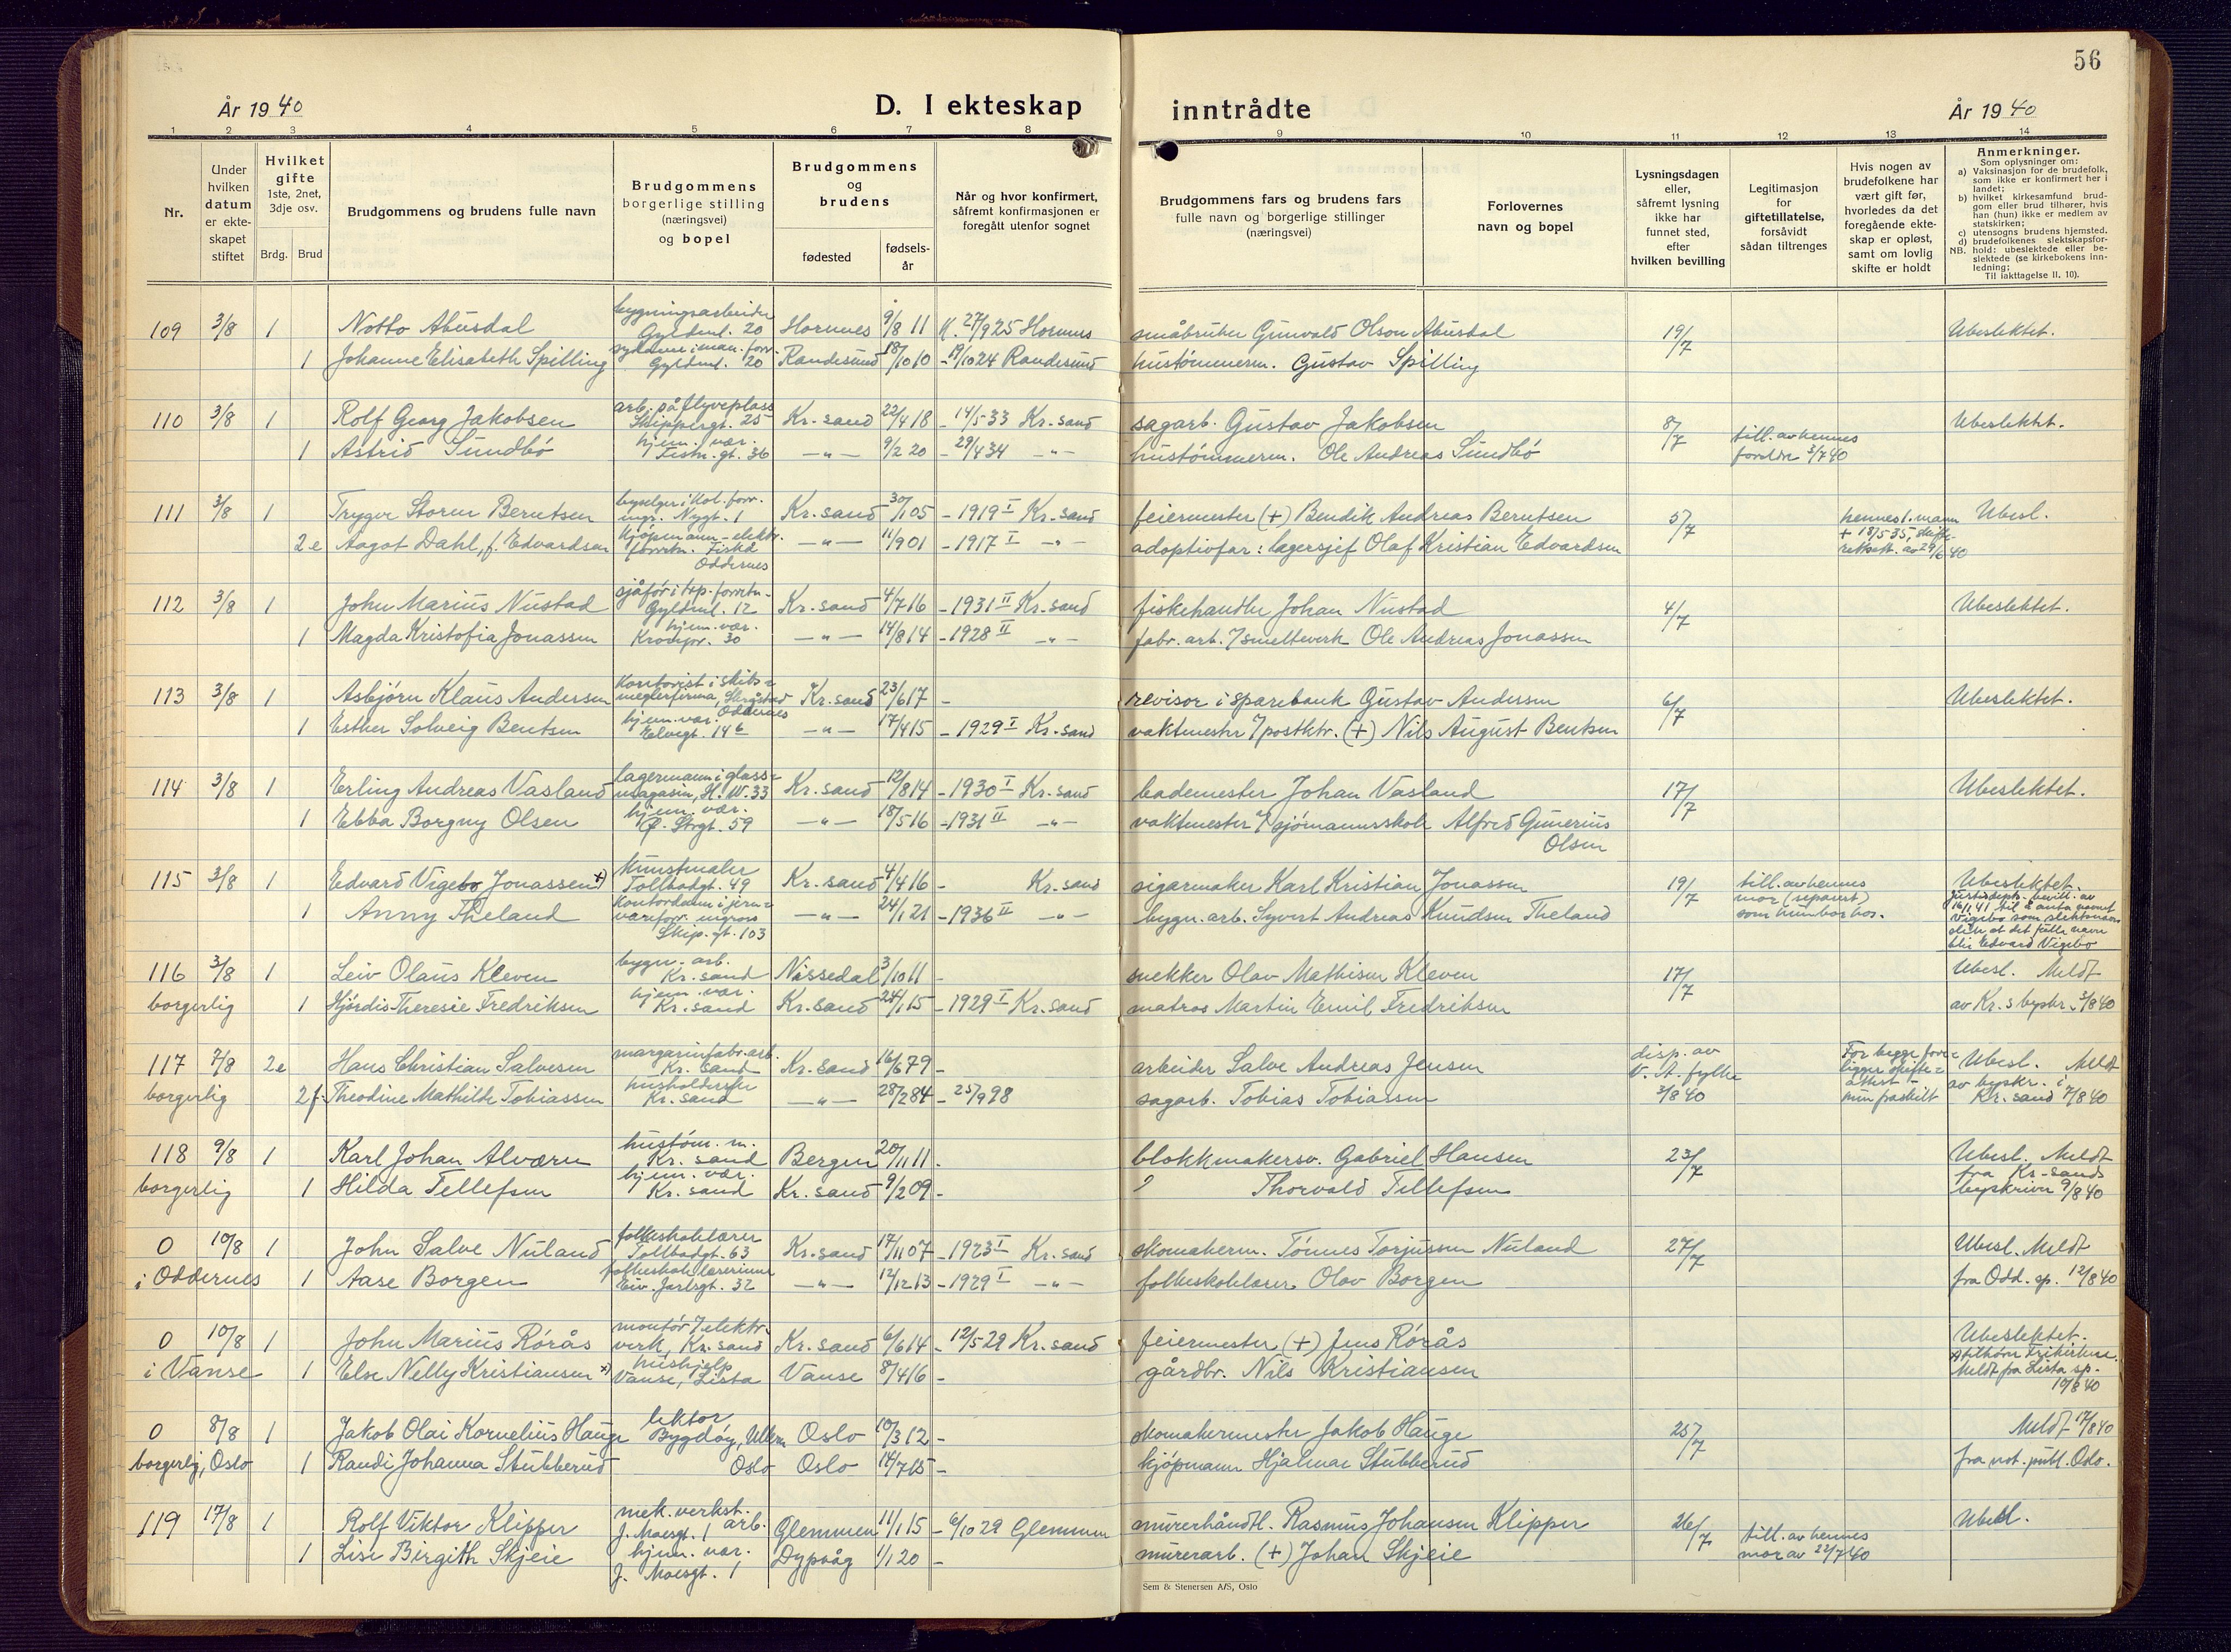 56
År 1940
D. I ekteskap
inntrådte
År 1940
1 2 3 4 5 6 7 8 9 10 11 12 13 14
Nr.
Under hvilken datum er ekteskapet stiftet
Hvilket gifte 1ste, 2net, 3dje osv.
Brdg. Brud
Brudgommens og brudens fulle navn
Brudgommens borgerlige stilling (næringsvei) og bopel
Brudgommens og brudens
fødested
fødsels-år
Når og hvor konfirmert, såfremt konfirmasjonen er foregått utenfor sognet
Brudgommens fars og brudens fars fulle navn og borgerlige stillinger (næringsvei)
Forlovernes navn og bopel
Lysningsdagen eller, såfremt lysning ikke har funnet sted, efter hvilken bevilling
Legitimasjon for giftetillatelse, forsåvidt sådan tiltrenges
Hvis nogen av brudefolkene har vært gift før, hvorledes da det foregående ekteskap er opløst, samt om lovlig skifte er holdt
Anmerkninger.
Som oplysninger om:
a) Vaksinasjon for de brudefolk, som ikke er konfirmert her i landet;
b) hvilket kirkesamfund brudgom eller brud tilhører, hvis han (hun) ikke er medlem av statskirken;
c) utensogns brudens hjemsted.
d) brudefolkenes slektskapsforhold: ubeslektede eller beslektede (se kirkebokens innledning;
NB. Til iakttagelse II, 10).
109 3/8 1 Notto Abusdal bygningsarbeider Gyldenl. 20 Hornnes 9/8 11 K. 27/9 25 Hornnes småbruker Gunvald Olson Abusdal 19/7 Ubeslektet.
1 Johanne Elisabeth Spilling Gyldenl. 20 Randesund 18/10 10 - 19/10 24 Randesund hustømmerm. Gustav Spilling
110 3/8 1 Rolf Georg Jakobsen arb. på flyveplass Skippergt. 25 Kr.sand 22/4 18 - 14/5 33 Kr.sand sagarb. Gustav Jakobsen 8/7 till. av hennes foreldre 3/7 40 Ubeslektet.
1 Astrid Sundbö hjem. vær. Tistr. gt. 36 —"— 9/2 20 - 29/4 34 —"— hustømmerm. Ole Andreas Sundbö
111 3/8 1 Trygve Storm Berntsen byselger i kol. forr. engr. Nygt. 1 Kr.sand 30/1 05 - 1919 I Kr.sand feiermester (+) Bendik Andreas Berntsen 5/7 hennes 1. mann + 18/5 35, skifterettsatt. av 29/6 40 Ubesl.
2e Aagot Dahl, f. Edvardsen Kjøpmann - elektr. forretn. Fiskå Oddernes —"— 11/9 01 - 1917 I —"— adoptivfar: lagersjef Olaf Kristian Edvardsen
112 3/8 1 John Marius Nustad sjåfør i tsp. forretn. Gyldenl. 12 Kr.sand 4/7 16 - 1931 II Kr.sand fiskehandler Johan Nustad 4/7 Ubeslektet.
1 Magda Kristofia Jonassen hjem. vær. Krossgr. 30 —"— 14/8 14 - 1928 II —"— fabr. arb. v/ smelteverk Ole Andreas Jonassen
113 3/8 1 Asbjørn Klaus Andersen kontorist i skibsmeglerfirma, Oddernes Kr.sand 23/6 17 - revisor i sparebank Gustav Andersen 6/7 Ubeslektet.
1 Esther Solveig Bentsen hjem. vær. Elvegt. 14 b —"— 17/4 15 - 1929 I Kr.sand vaktmester v/ postktr. (+) Nils August Bentsen
114 3/8 1 Erling Andreas Vasland lagermann i glassmagasin, H. W. 33 Kr.sand 12/8 14 - 1930 I Kr.sand bademester Johan Vasland 17/7 Ubeslektet.
1 Ebba Borgny Olsen hjem. vær. Ø. Strgt. 59 —"— 18/5 16 - 1931 II —"— vaktmester v/ sjømannsskole Alfred Gunerius Olsen
115 3/8 1 Edvard Vigebo Jonassen +) Kunstmaler Tollbodgt. 49 Kr.sand 4/4 16 - Kr.sand sigarmaker Karl Kristian Jonassen 19/7 till. av hennes mor (separert) som hun bor hos. Ubeslektet. Justisdepts. bevill. av 16/1 41 til å anta navnet Vigebo som slektsnavn slik at det fulle navn blir Edvard Vigebo
1 Anny Theland kontordame i jernvareforr. engros Skip. gt. 103 —"— 24/1 21 - 1936 II —"— bygn. arb. Syvert Andreas Knudsen Theland
116 3/8 1 Leiv Olaus Kleven bygn. arb. Kr.sand Nissedal 3/10 11 - snekker Olav Mathisen Kleven 17/7 Ubesl. Meldt
borgerlig 1 Hjördis Theresie Fredriksen hjem. vær. Kr.sand Kr.sand 24/1 15 - 1929 I Kr.sand matros Martin Emil Fredriksen av Kr.s byskr. 3/8 40
117 7/8 2e Hans Christian Salvesen margarinfabr. arb. Kr.sand Kr.sand 16/6 79 - arbeider Salve Andreas Jensen disp. av V. A. fylke 3/8 40 For begge foreligger skifteattest - hun fraskilt Ubesl. Meldt av byskr. i Kr.sand 7/8 40
borgerlig 2 f. Theodine Mathilde Tobiassen husholderske Kr.sand —"— 28/2 84 - 25/9 98 sagarb. Tobias Tobiassen
118 9/8 1 Karl Johan Alværn hustøm. m. Kr.sand Bergen 20/11 11 - blokkmakersv. Gabriel Hansen 23/7 Ubesl. Meldt fra Kr.sands byskriver 9/8 40
borgerlig 1 Hilda Tellefsen hjem. vær. Kr.sand Kr.sand 9/2 09 - ? Thorvald Tellefsen
0 10/8 1 John Salve Nuland folkeskolelærer Tollbodgt. 63 Kr.sand 17/11 07 - 1923 I Kr.sand skomakerm. Tönnes Torjussen Nuland 27/7 Ubesl. Meldt
i Oddernes 1 Aase Borgen folkeskolelærerinne Eiv. Jarlsgt. 32 —"— 12/12 13 - 1929 I —"— folkeskolelærer Olav Borgen fra Odd. sp. 12/8 40
0 10/8 1 John Marius Rörås montør v/ elektr. verk, Kr.sand Kr.sand 6/6 14 - 12/5 29 Kr.sand feiermester (+) Jens Rörås Ubeslektet.
i Vanse 1 Else Nelly Kristiansen +) hushjelp Vanse, Lista Vanse 8/4 16 - gårdbr. Nils Kristiansen +) tilhører Frikirken. Meldt fra Lista sp. 10/8 40
0 8/8 1 Jakob Olai Kornelius Hauge lektor Bygdøy, Ullern Oslo 10/3 12 - skomakermester Jakob Hauge 25/7 Meldt 17/8 40
borgerlig, Oslo 1 Randi Johanna Stubberud Oslo Oslo 14/7 15 - kjøpmann Hjalmar Stubberud fra not. publ. Oslo.
119 17/8 1 Rolf Viktor Klipper mek. verkst. arb. J. Moesgt. 1 Glemmen 11/1 15 - 6/10 29 Glemmen murerhåndl. Rasmus Johansen Klipper 26/7 till. av hennes mor av 22/7 40 Ubesl.
1 Lise Birgith Skjeie hjem. vær. J. Moesgt. 1 Dypvåg 1/1 20 - murerarb. (+) Johan Skjeie
Sem & Stenersen A/S, Oslo